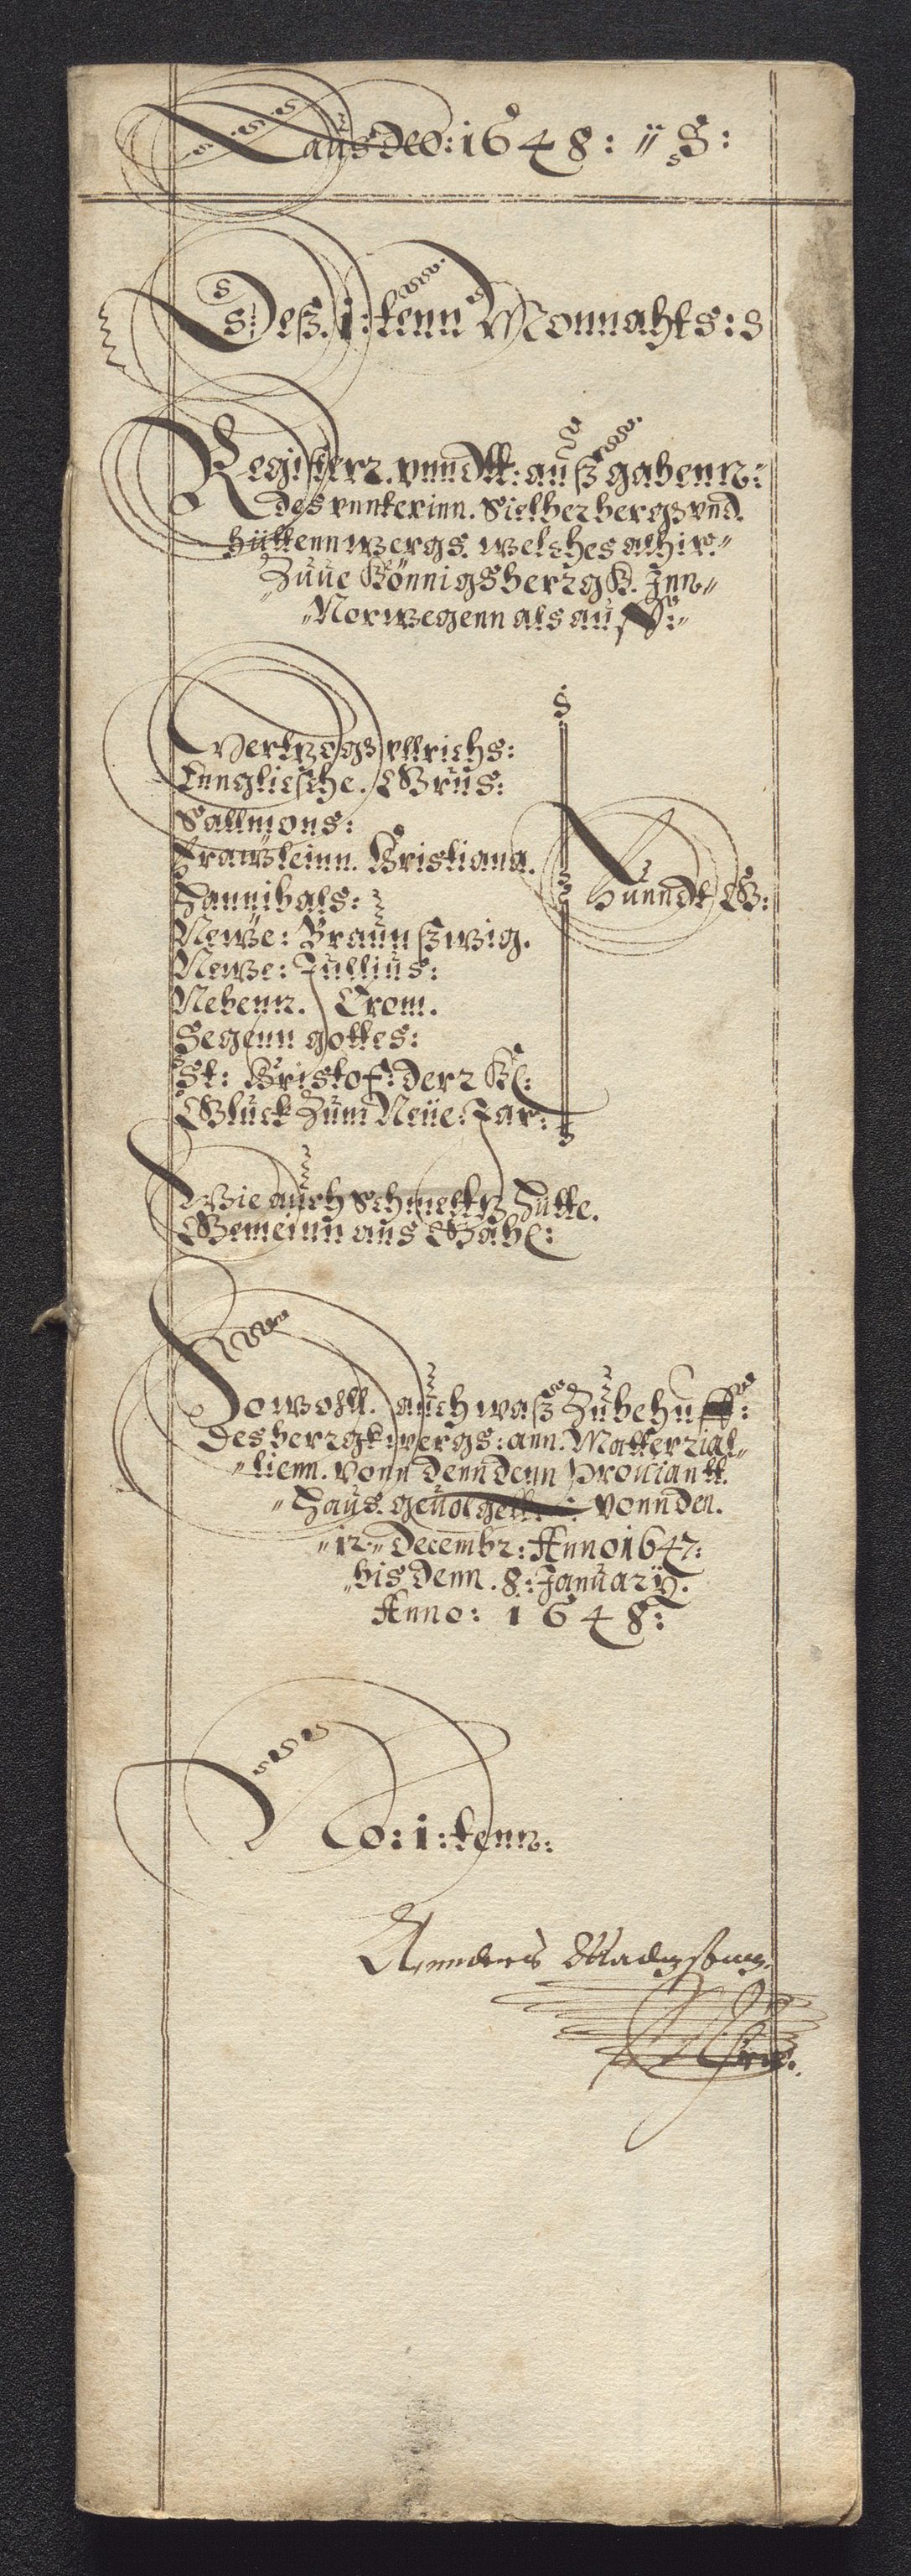 Laus Deo: 1648: // S:
Deß. i: tenn Monnahts: s
Registerr. vnndtt: außgabenn:
des vnnterinn. Sielberbergß vnd.
hüttennwergs. welches alhir.
Zuue Könnigsbergk. Inn
Norwegenn als auff:
Hertzogß vllrichs:
Ennglische. Grus:
Sallmons:
Frawleinn. Cristiana.
Hannibals:
Newe: Braunßwig.
Newe: Jullius:
Nebenn. Crom.
Segenn gottes:
St: Cristof: der Kl:
Gluck Zum Neue: Jar:
Fundt G:
Wie auch Schmeltz Hütte.
Gemeinn aus Gabe:
Sowoll. auch waß Zu behuff:
des bergkwergs: ann. Matterial
lienn. vonn denn denn Proviantt.
Haus. geuolgett. vonn den.
12 Decembr: Anno 1647:
bis denn. 8: January.
Anno: 1648:
No: i: tenn:
Annders Madzsenn